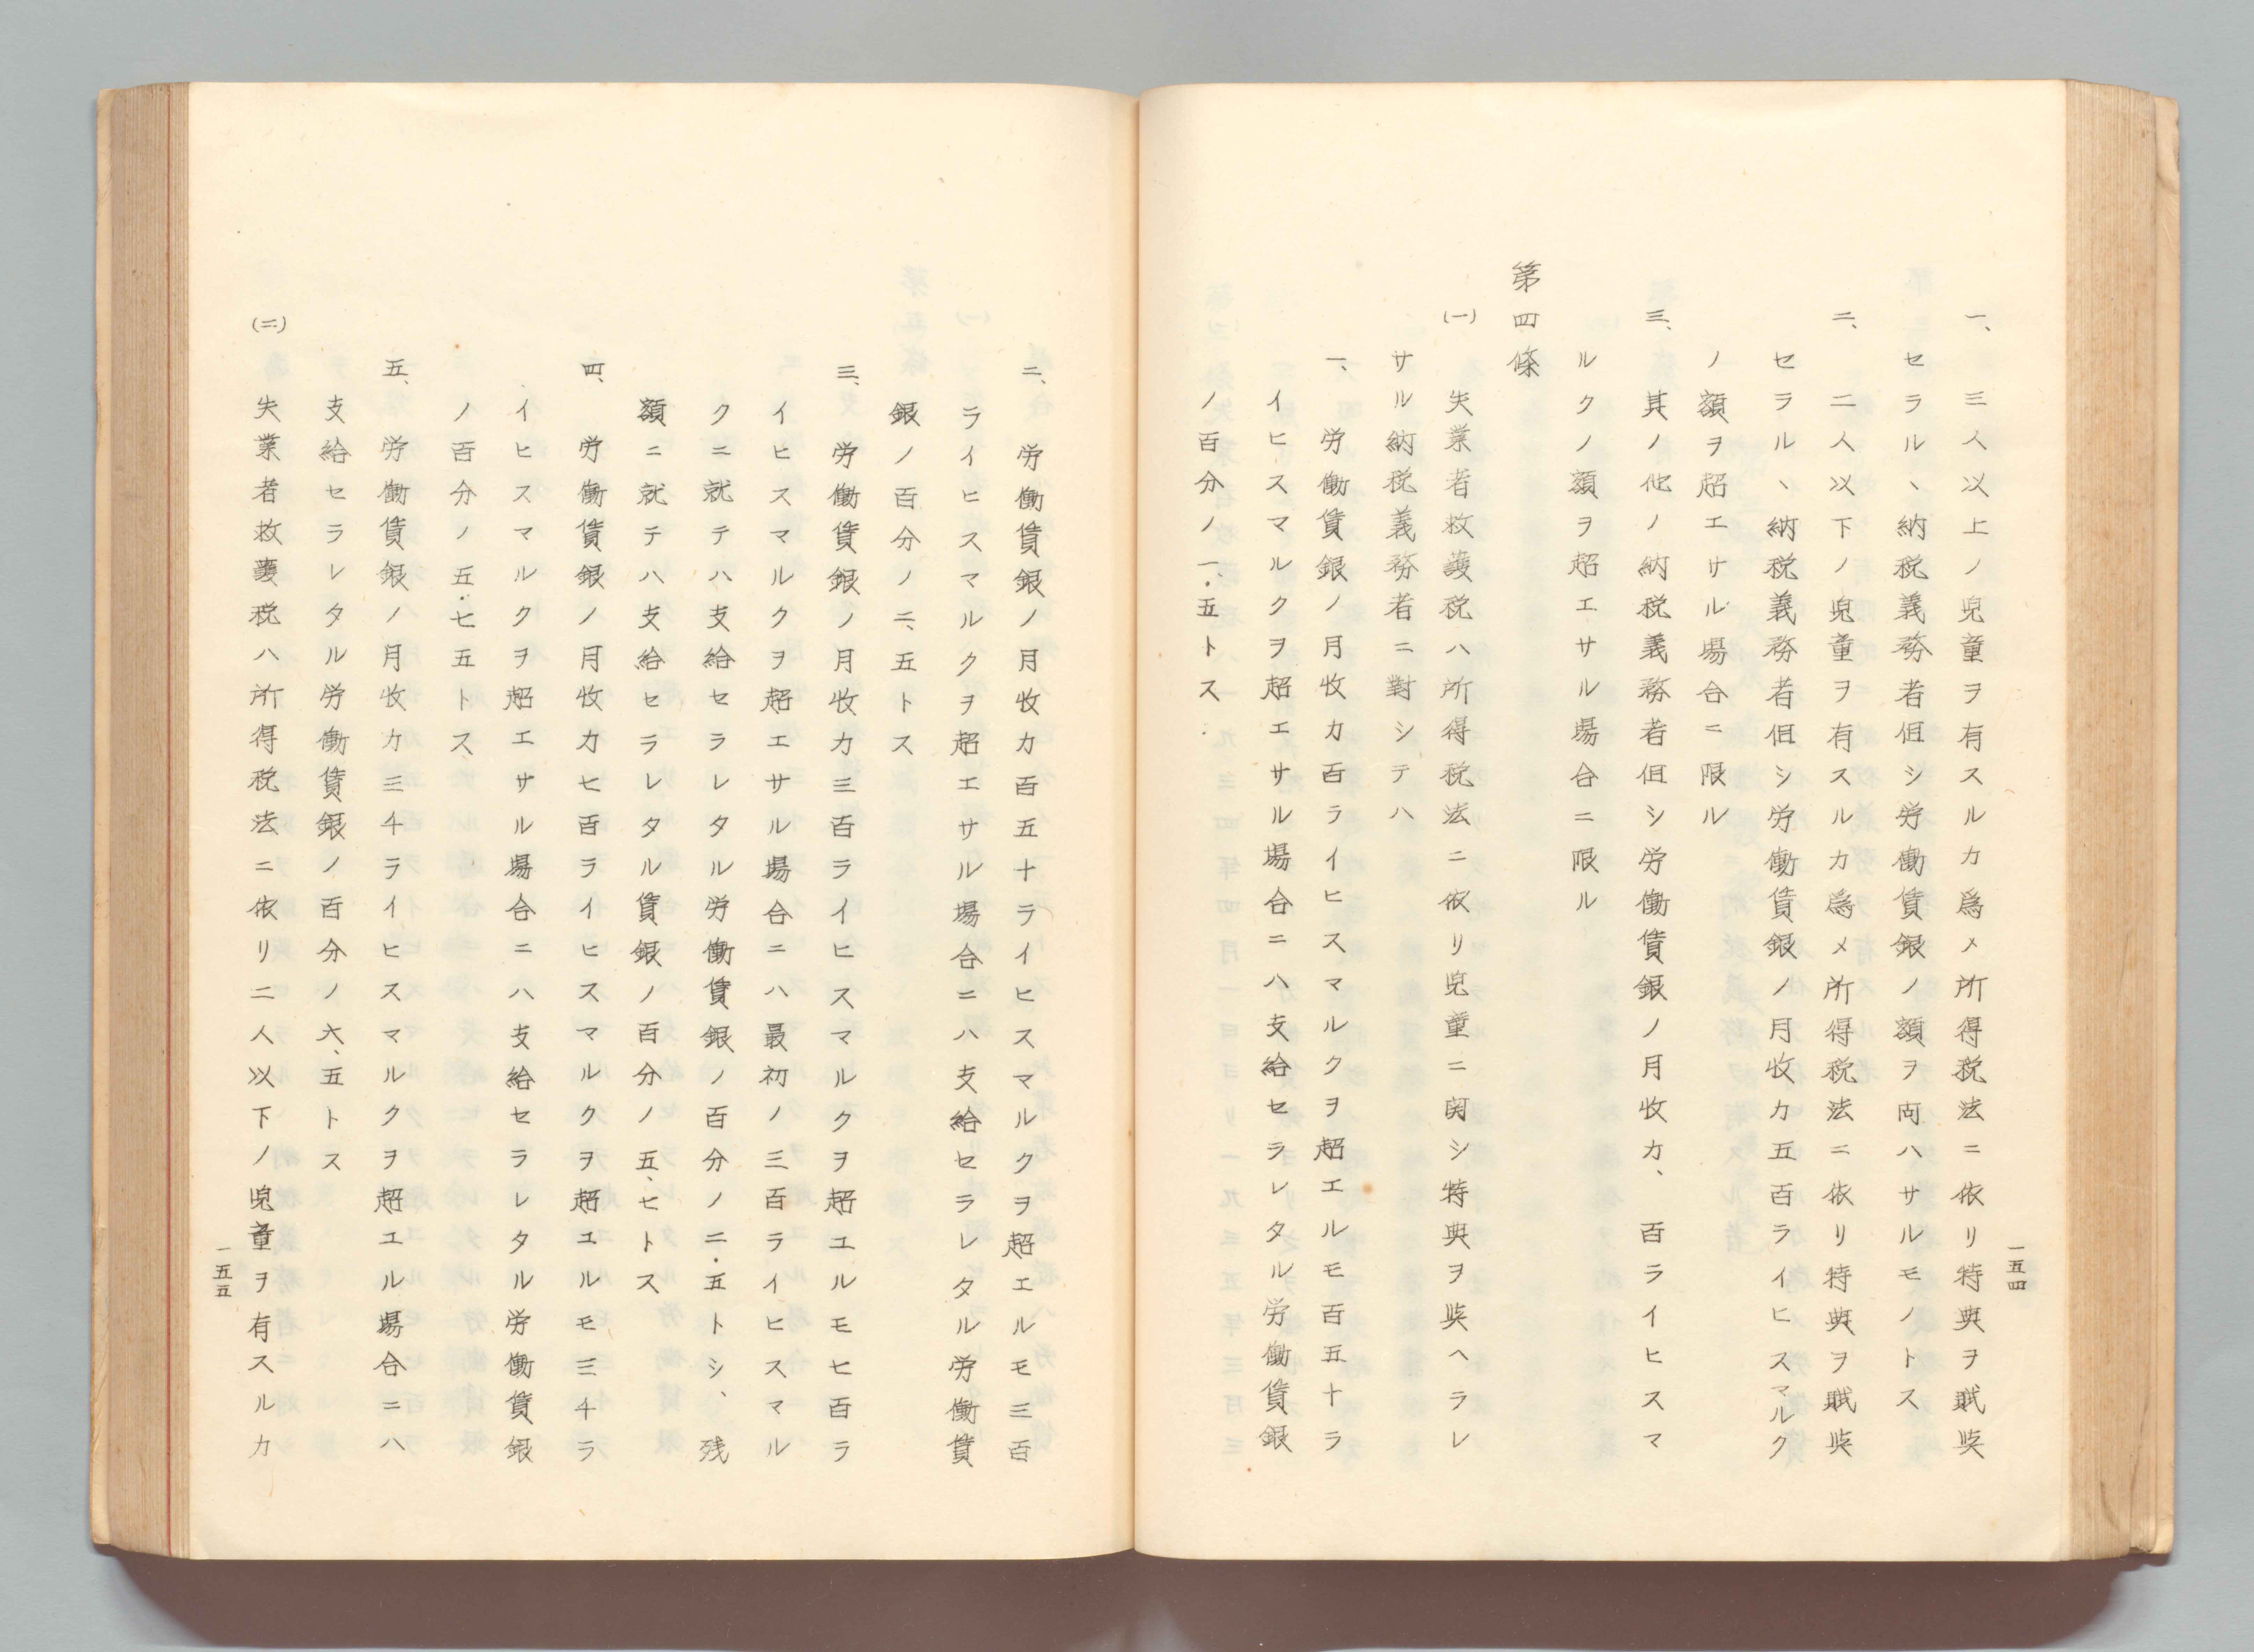 一、三人以上ノ児童ヲ有スルカ為メ所得税法ニ依リ特典ヲ賦与
セラル、納税義務者但シ労働賃銀ノ額ヲ両ハサルモノトス
二、二人以下ノ児童ヲ有スルカ為メ所得税法ニ依リ特典ヲ賦与
セラル、納税義務者但シ労働賃銀ノ月收カ五百ライヒスマルク
ノ額ヲ超エサル場合ニ限ル
三、其ノ他ノ納税義務者但シ労働賃銀ノ月收カ、百ライヒスマ
ルクノ額ヲ超エサル場合ニ限ル
第四條
(一)失業者救護税ハ所得税法ニ依リ児童ニ関シ特典ヲ与ヘラレ
サル納税義務者ニ對シテハ
一、労働賃銀ノ月收カ百ライヒスマルクヲ超エルモ百五十ラ
イヒスマルクヲ超エサル場合ニハ支給セラレタル労働賃銀
ノ百分ノ一・五トス
一五四
二、労働賃銀ノ月收カ百五十ライヒスマルクヲ超エルモ三百
ライヒスマルクヲ超エサル場合ニハ支給セラレタル労働賃
銀ノ百分ノ二、五トス
三、労働賃銀ノ月收カ三百ライヒスマルクヲ超エルモ七百ラ
イヒスマルクヲ超エサル場合ニハ最初ノ三百ライヒスマル
クニ就テハ支給セラレタル労働賃銀ノ百分ノ二・五トシ、残
額ニ就テハ支給セラレタル賃銀ノ百分ノ五、七トス
四、労働賃銀ノ月收カ七百ライヒスマルクヲ超エルモ三千ラ
イヒスマルクヲ超エサル場合ニハ支給セラレタル労働賃銀
ノ百分ノ五・七五トス
五、労働賃銀ノ月收カ三千ライヒスマルクヲ超エル場合ニハ
支給セラレタル労働賃銀ノ百分ノ六、五トス
(二)失業者救護税ハ所得税法ニ依リ二人以下ノ児童ヲ有スルカ
一五五